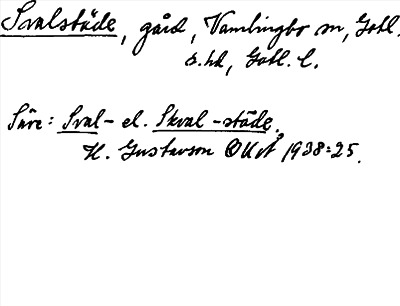 Svalstäde, gård, Vamlingbo sn, Gotl.
s. hd, Gotl. l.
Säve: Sval- el. Skval-städe.
H. Gustavson 1938:25.